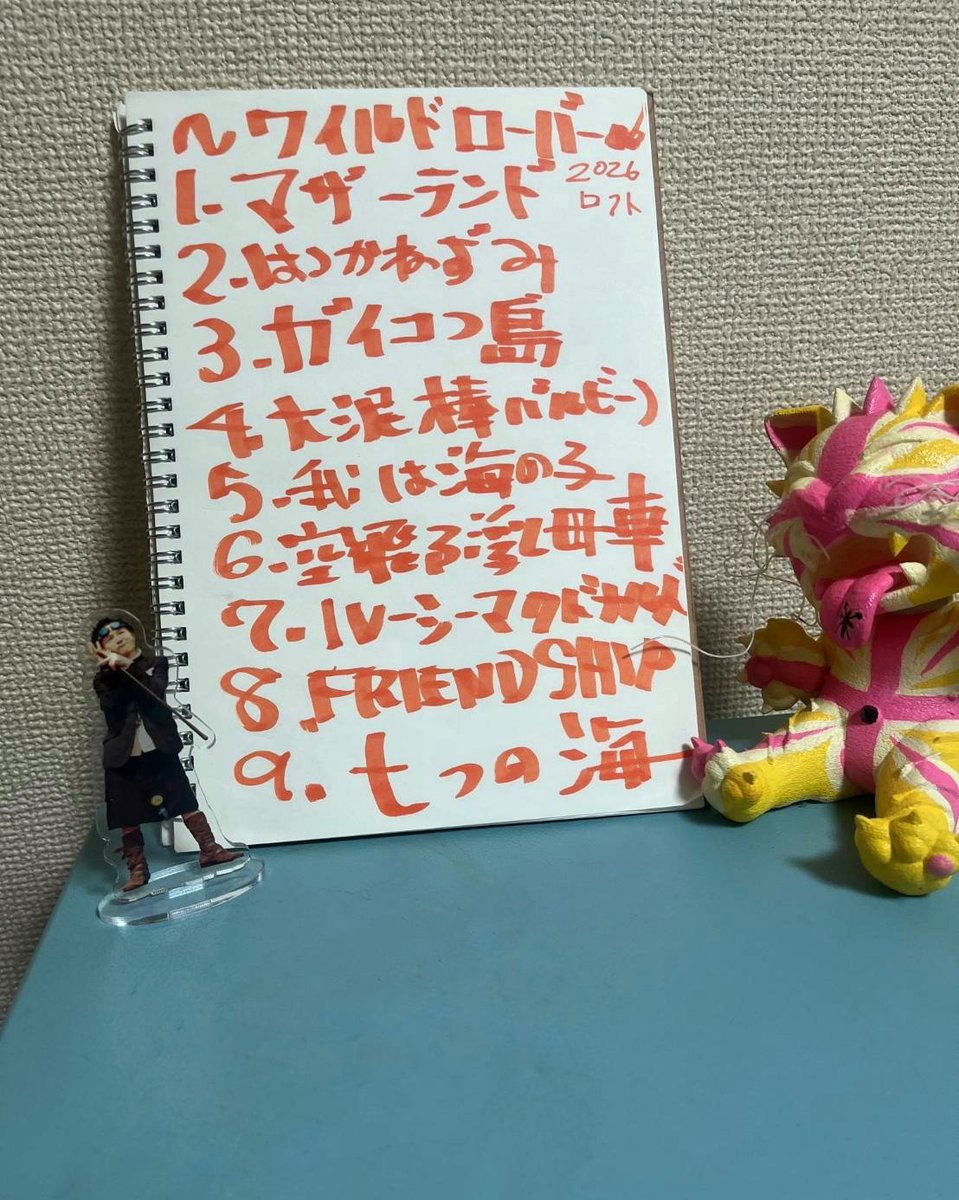 〜ワイルドローバー
2026
ロフト
1.マザーランド
2.はつかねずみ
3.ガイコつ島
4.大泥棒(バルビー)
5.我は海の子
6.空飛る浮乳母車
7.ルーシーマクドガル
8.FRIENDSHIP
9.七つの海